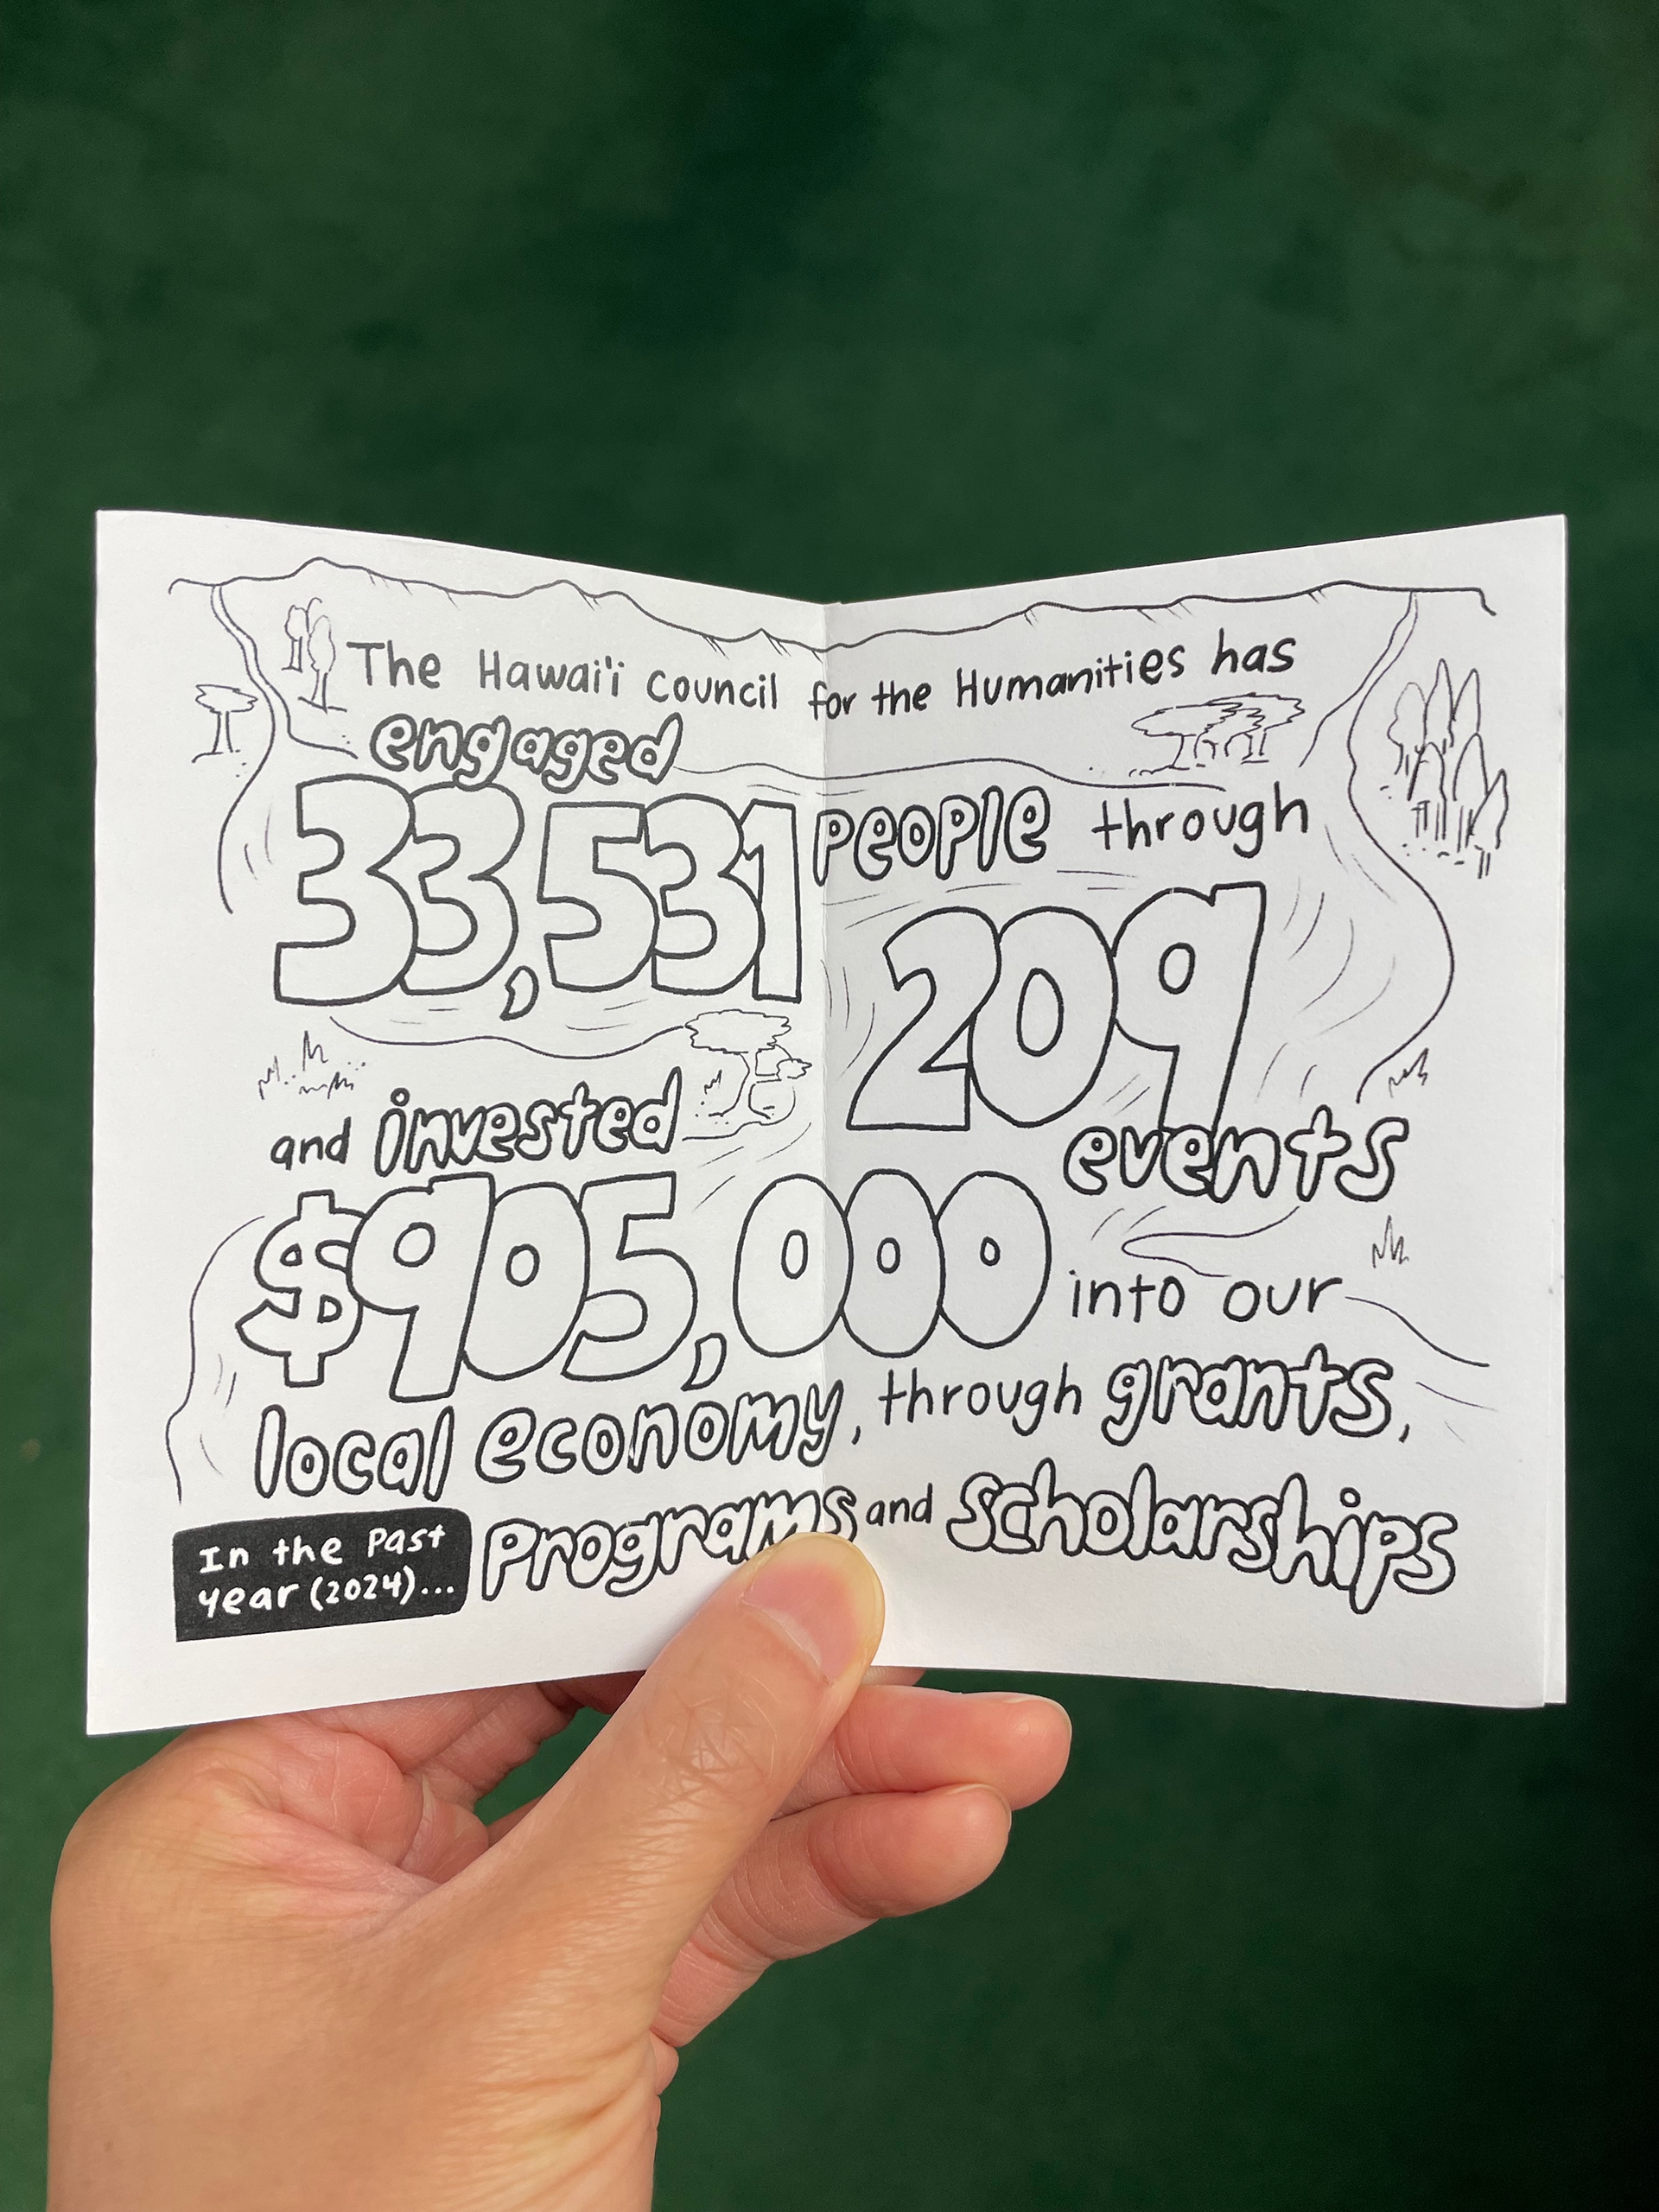 The Hawai'i Council for the Humanities has
engaged
33,531 people through
209
events
and invested
$905,000 into our
local economy, through grants,
Programs and scholarships
In the Past
year (2024)...